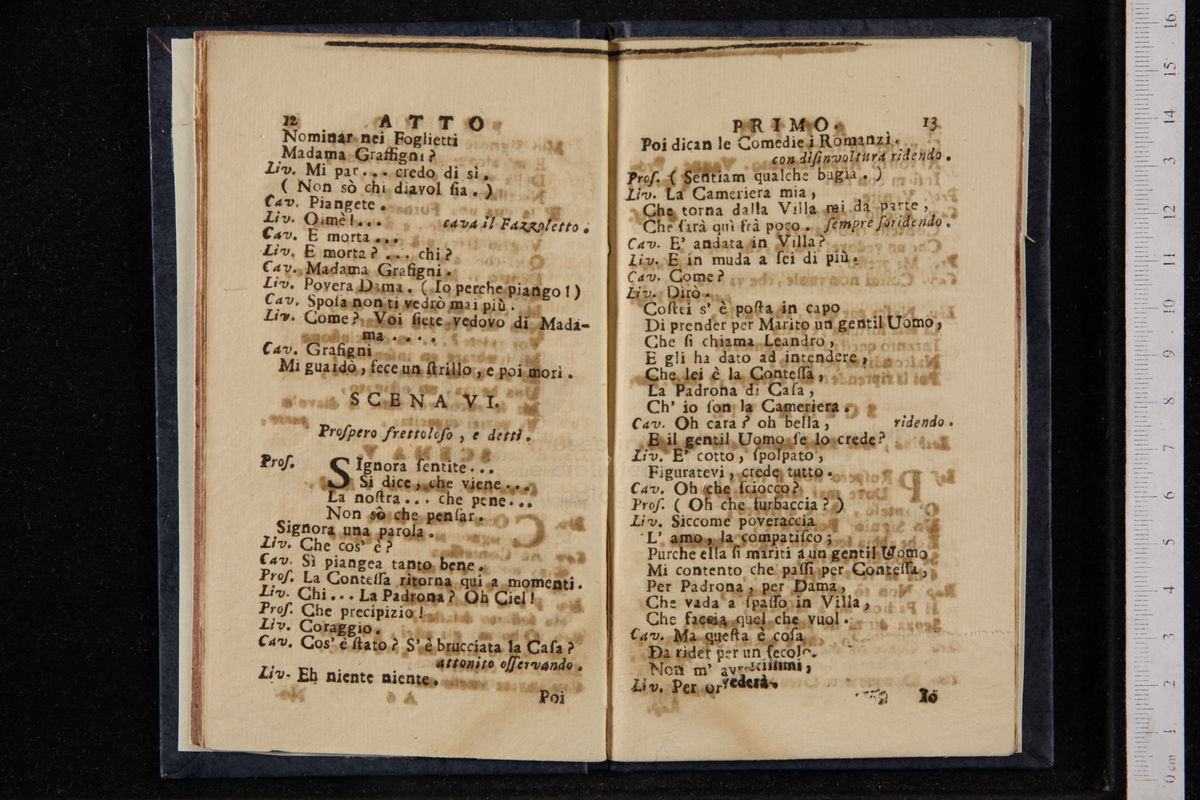 12 ATTO
Nominar nei Foglietti
Madama Graffigni?
Liv. Mi par... credo di sì.
( Non sò chi diavol ſia. )
Cav. Piangete.
Liv. Oimè!... cava il Fazzoletto.
Cav. E morta...
Liv. E morta?... chi?
Cav. Madama Grafigni.
Liv. Povera Dama. ( Io perche piango! )
Cav. Spoſa non ti vedrò mai più.
Liv. Come? Voi ſiete vedovo di Mada-
ma....
Cav. Grafigni
Mi guardò, fece un ſtrillo, e poi morì.
SCENA VI.
Proſpero frettoloſo, e detti.
Proſ. SIgnora ſentite...
Si dice, che viene...
La noſtra... che pene...
Non sò che penſar.
Signora una parola.
Liv. Che cos' è?
Cav. Sì piangea tanto bene.
Proſ. La Conteſſa ritorna qui a momenti.
Liv. Chi... La Padrona? Oh Ciel!
Proſ. Che precipizio!
Liv. Coraggio.
Cav. Cos' è ſtato? S' è brucciata la Caſa?
attonito oſſervando.
Liv. Eh niente niente.
Poi
PRIMO. 13
Poi dican le Comedie i Romanzì.
con diſinvoltura ridendo.
Proſ. ( Sentiam qualche bugia. )
Liv. La Cameriera mia,
Che torna dalla Villa mi da parte,
Che ſarà quì frà poco. ſempre ſoridendo.
Cav. E' andata in Villa?
Liv. E in muda a ſei di più.
Cav. Come?
Liv. Dirò.
Coſtei s' è poſta in capo
Di prender per Marito un gentil Uomo,
Che ſi chiama Leandro,
E gli ha dato ad intendere,
Che lei è la Conteſſa,
La Padrona di Caſa,
Ch' io ſon la Cameriera.
Cav. Oh cara? oh bella, ridendo.
E il gentil Uomo ſe lo crede?
Liv. E' cotto, ſpolpato,
Figuratevi, crede tutto.
Cav. Oh che ſciocco?
Proſ. ( Oh che furbaccia? )
Liv. Siccome poveraccia
L' amo, la compatiſco;
Purche ella ſi mariti a un gentil Uomo
Mi contento che paſſi per Conteſſa,
Per Padrona, per Dama,
Che vada a ſpaſſo in Villa,
Che faccia quel che vuol.
Cav. Ma queſta è coſa
Da rider per un ſecolo.
Non m'
Liv. Per or vederà.
Io